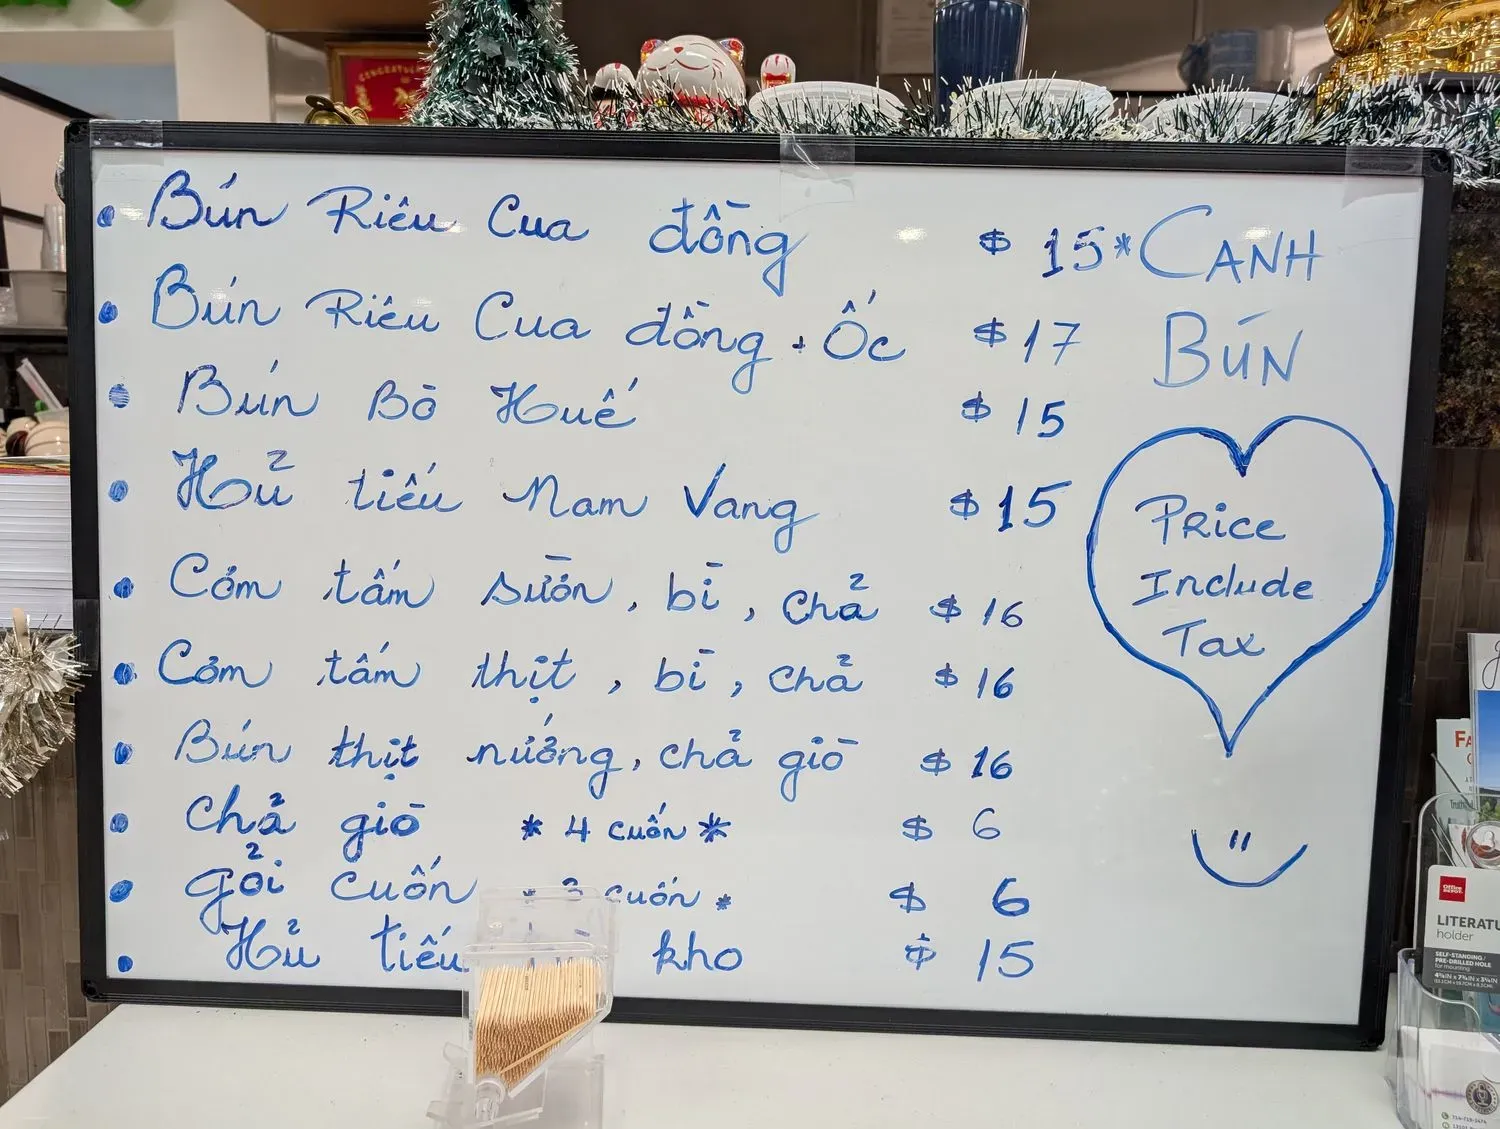 • Bún Riêu Cua đồng $ 15
• Bún Riêu Cua đồng + Ốc $ 17
• Bún Bò Huế $ 15
• Hủ tiếu Nam Vang $ 15
• Cơm tấm sườn, bì, chả $ 16
• Cơm tấm thịt, bì, chả $ 16
• Bún thịt nướng, chả giò $ 16
• chả giò * 4 cuốn * $ 6
• gỏi cuốn * cuốn * $ 6
• Hủ tiếu kho $ 15
* CANH
BÚN
Price
Include
Tax
Office
DEPOT
LITERATU
holder
SELF-STANDING /
PRE-DRILLED HOLE
for mounting